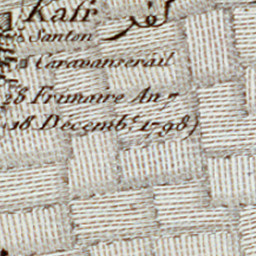 Kafr كفر
Santon
Caravanserail
28 Frimaire An 7
18 Décemb.e 1798)